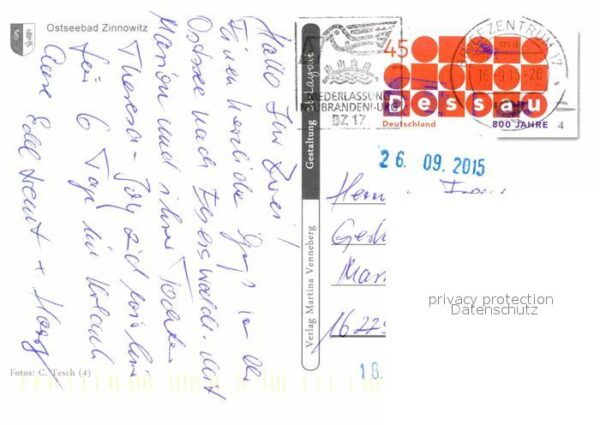 Ostseebad Zinnowitz
Hallo Ihr Zwei!
Einen herzliche Gruß von der
Ostsee nach Eberswalde. Mit
Marion und ihrer Tochter
Theresa-Joly sind wir hier
für 6 Tage im Urlaub
Eure Edeltraut + Harry
Fotos: C. Tesch (4)
Gestaltung Layout
Verlag Martina Venneberg
NIEDERLASSUNG
NEUBRANDENBURG
BZ 17
ZENTRUM 17
45
Dessau
Deutschland 800 JAHRE
4
26. 09. 2015
Gesch
Mar
1622
18.
privacy protection
Datenschutz